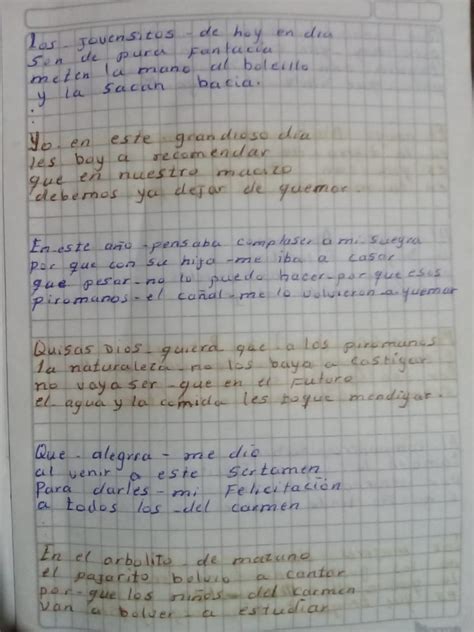 Los jovensitos - de hoy en dia
son de pura fantacia
meten la mano al bolcillo
y la sacan bacia.
Yo en este grandioso dia
les boy a recomendar
que en nuestro macizo
debemos ya dejar de quemar.
En este año - pensaba complaser a mi suegra
por que con su hija - me iba a casar
que pesar - no lo puedo hacer - por que esos
piromanos - el cañal - me lo volvieron a quemar
Quisas Dios - quiera que - a los piromanos
la naturaleza - no los baya a castigar
no vaya ser - que en el futuro
el agua y la comida les toque mendigar.
Que - alegria - me dio
al venir a este sertamen
Para darles - mi Felicitación
a todos los - del carmen
En el arbolito - de maturo
el pajarito bolvio a cantar
por - que los niños - del Karmen
van a bolver - a estudiar